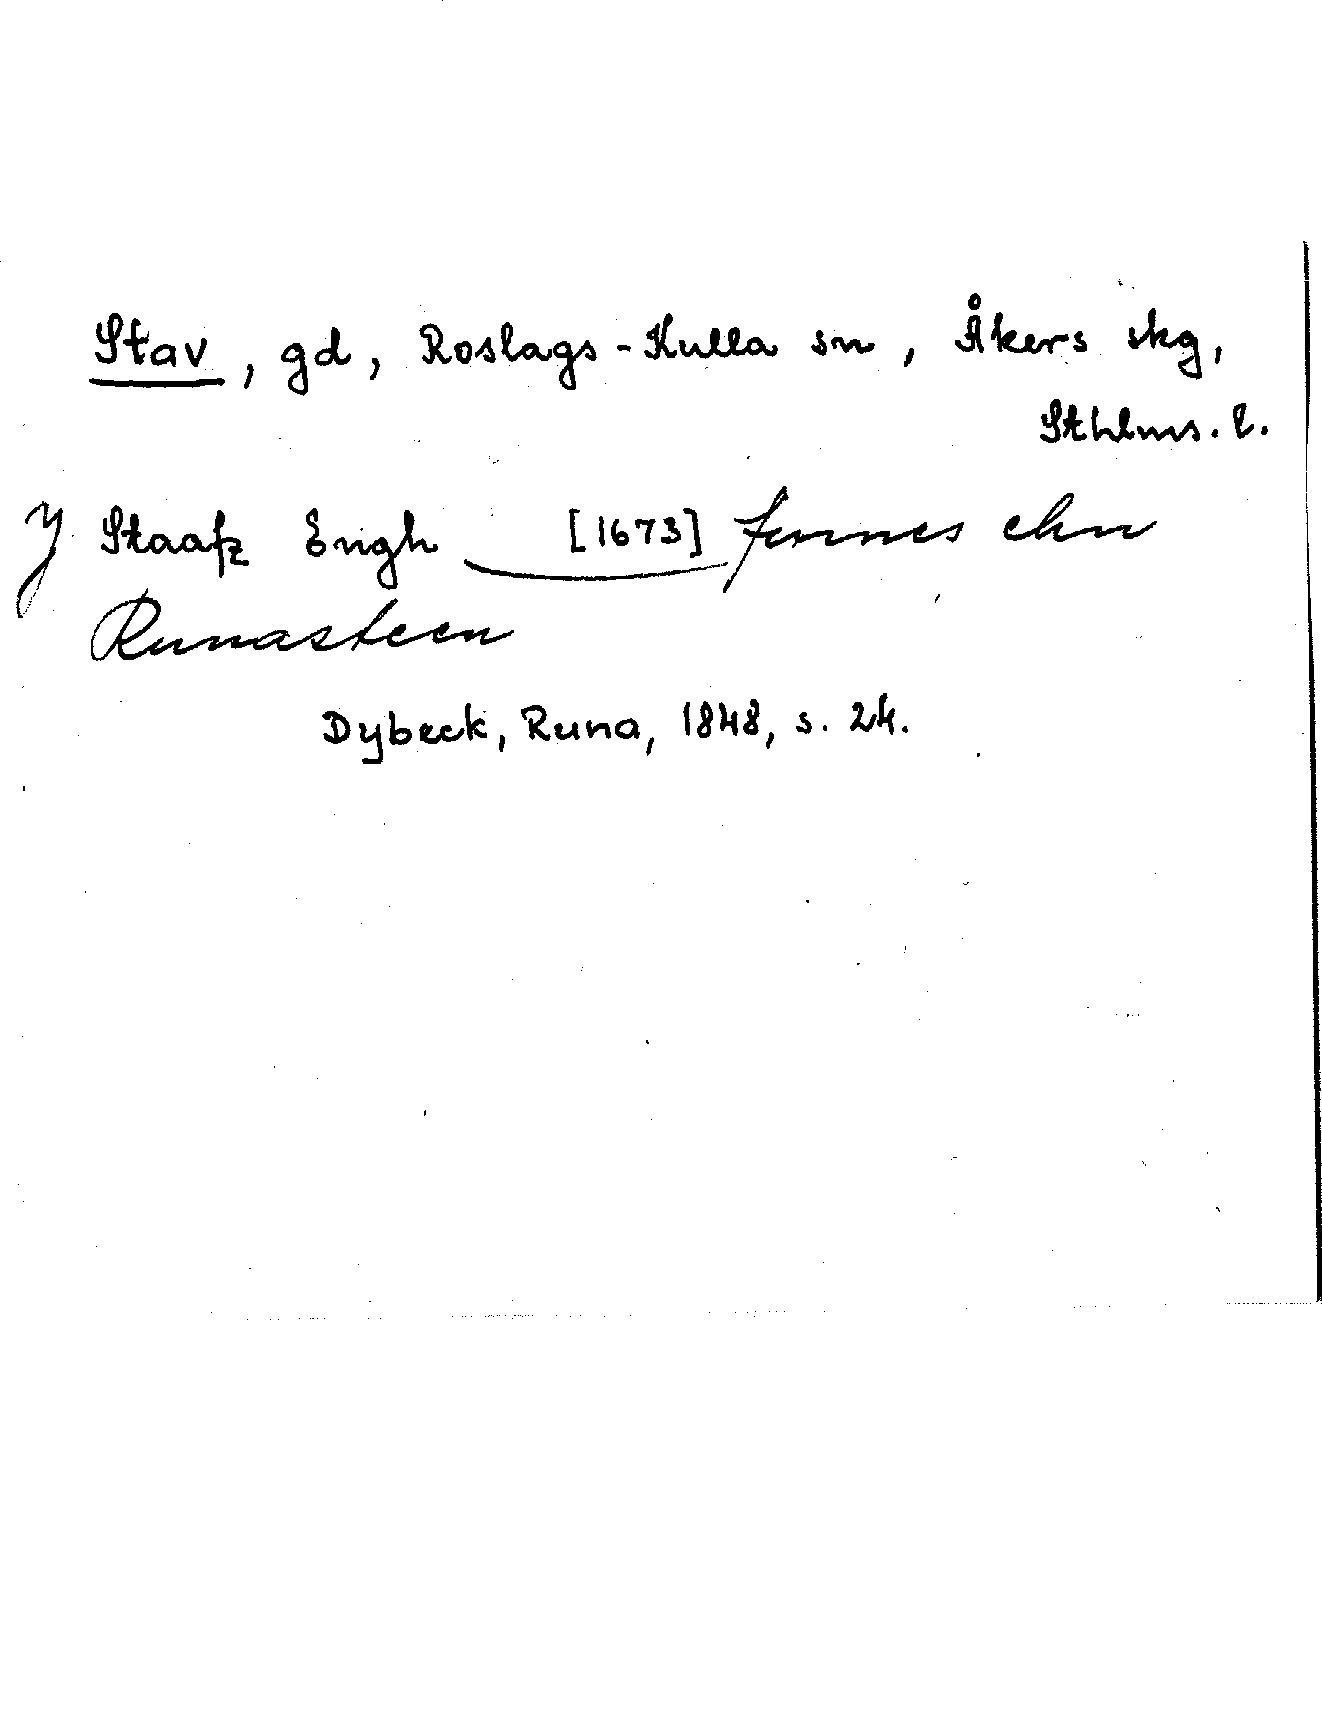 Stav, gd, Roslags-Kulla sn, Åkers skg,
Sthlms. l.
J Staafz Engh [1673] finnes ehn
Runasteen
Dybeck, Runa, 1848, s. 24.